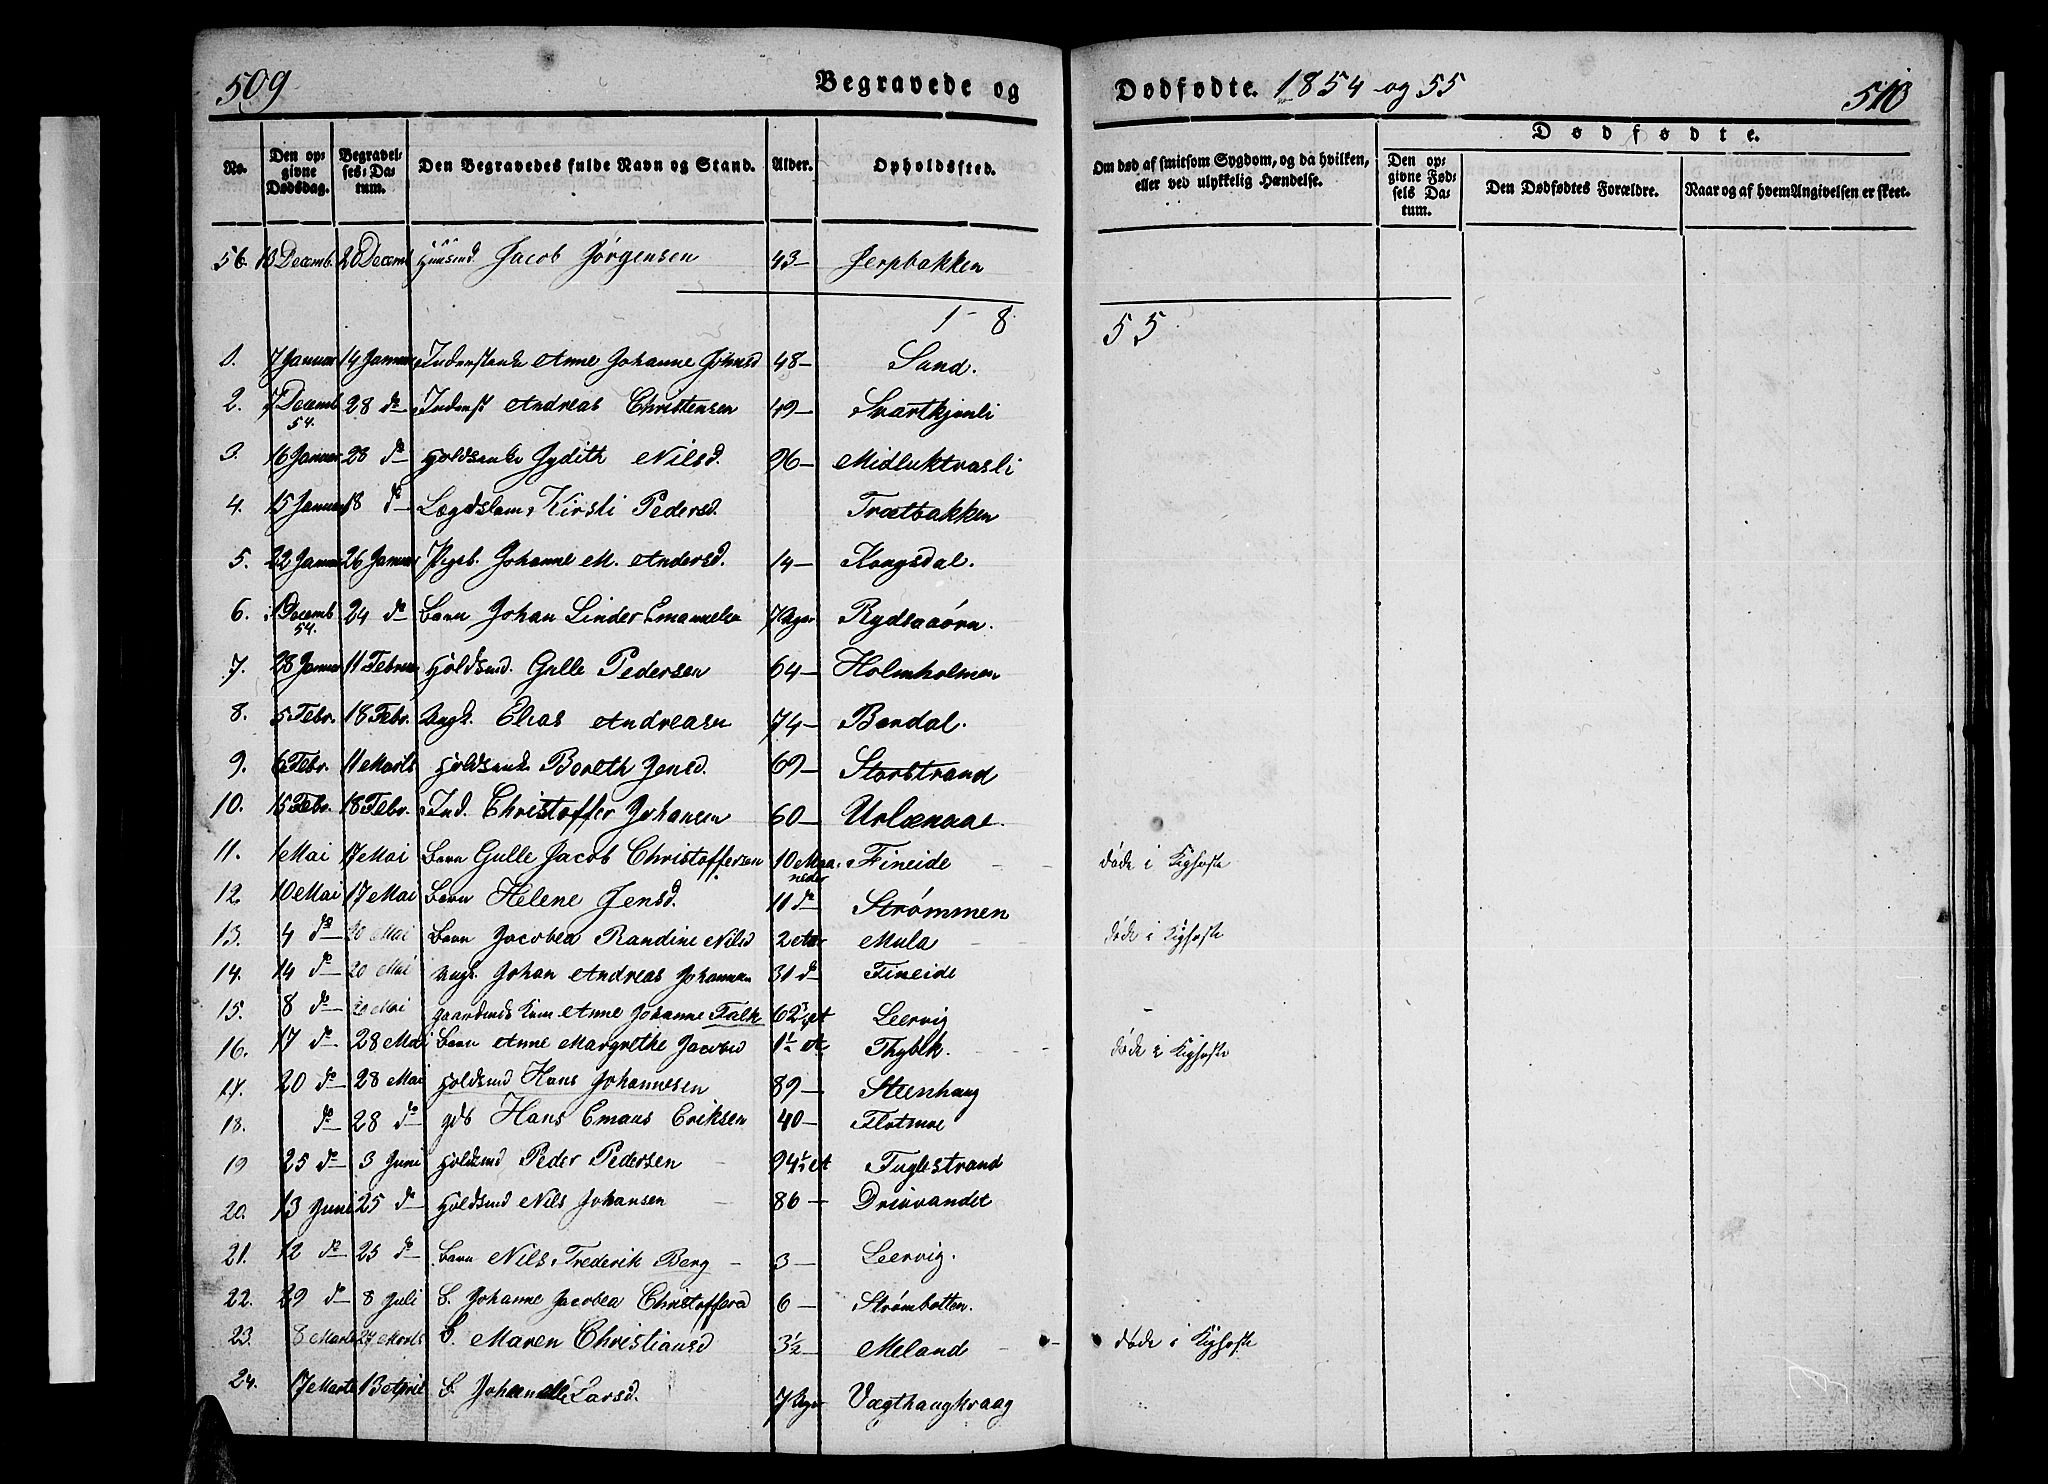 509
Begravede og
Dødfødte. 1854 og 55
510
No.
Den opgivne Dødsdag.
Begravelses-Datum.
Den Begravedes fulde Navn og Stand.
Alder.
Opholdssted.
Om død af smitsom Sygdom, og da hvilken, eller ved ulykkelig Hændelse.
Dødfødte.
Den opgivne Fødsels Datum.
Den Dødfødtes Forældre.
Naar og af hvem Angivelsen er skeet.
56. 13 Decemb. 28 Decemb Huusmd. Jacob Jørgensen 43 — Jerpbakken
1 - 8
55
1. 7 Januar 14 Januar Inderstenke Anne Johanne Johnsd 48 — Sand.
2. 7 Decemb 54. 28 do Inderst Andreas Christensen 49 — Svartkjønli
3. 16 Januar 28 do Holdsenke Jydith Nilsd. 96 — Midluktvasli
4. 15 Januar 18 do Lægdslem Kirsti Pedersd. Trætbakken
5. 22 Januar 26 Januar Pigeb. Johanne M. Andersd. 14 — Kongsdal.
6. 1 Decemb 54. 24 do Barn Johan Linder Emanuelsn 7 Uger Rydeaaørn.
7. 28 Januar 11 Februar Holdsmd. Gulle Pedersen 64 — Holmholmen
8. 5 Febr. 18 Febr. Ungk. Elias Andreasn 74 — Bardal.
9. 6 Febr. 11 Marts Holdsenke Boreth Jensd. 69 — Storstrand
10. 15 Febr. 18 Febr. Ind. Christoffer Johansen 60 — Urlænaae.
11. 1 Mai 17 Mai Barn Gulle Jacob Christoffersen 10 Maaneder Fineide døde i Kighoste
12. 10 Mai 17 Mai Barn Helene Jensd. 11 do Strømmen
13. 4 do 20 Mai Barn Jacobea Randine Nilsd 2 Aar Mula døde i Kighoste
14. 14 do 20 Mai Ungk. Johan Andreas Johannsn 31 do Fineide
15. 8 do 20 Mai Gaardmds Kone Anne Johanne Falk 62 Leervig
16. 17 do 28 Mai Barn Anne Margrethe Jacobsd 1½ A. Thybek. døde i Kighoste
17. 20 do 28 Mai Holdsmd Hans Johannesen 89 — Steenhaug
18. do 28 do Hans Emaus Eriksen 40 — Flotmoe
19 25 do 3 Juni Holdsmd Peder Pedersen 94½ Fuglestrand
20. 13 Juni 25 do Holdsmd Nils Johansen 86 — Drevvandet
21. 12 do 25 do Barn Nils Frederik Berg 3 — Leervig.
22. 29 do 8 Juli B. Johanne Jacobea Christoffersd 6 — Strømbotten.
23. 8 Marts 27 Marts B. Maren Christiansd 3½ Meland døde i Kighoste
24. 17 Marts 13 April B. Larsd. 7 Uger Vægthaugkraag